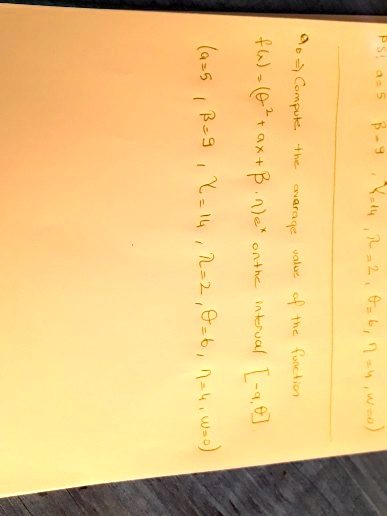 PS! a=5 β=9 , γ=14 , λ=2 , θ=6 , η=4 , w=0)
Q6 => Compute the average value of the function
f(x) = (θ² + ax + β.η)eˣ on the interval [-a, θ]
(a=5 , β=9 , γ=14 , λ=2 , θ=6 , η=4 , w=0)